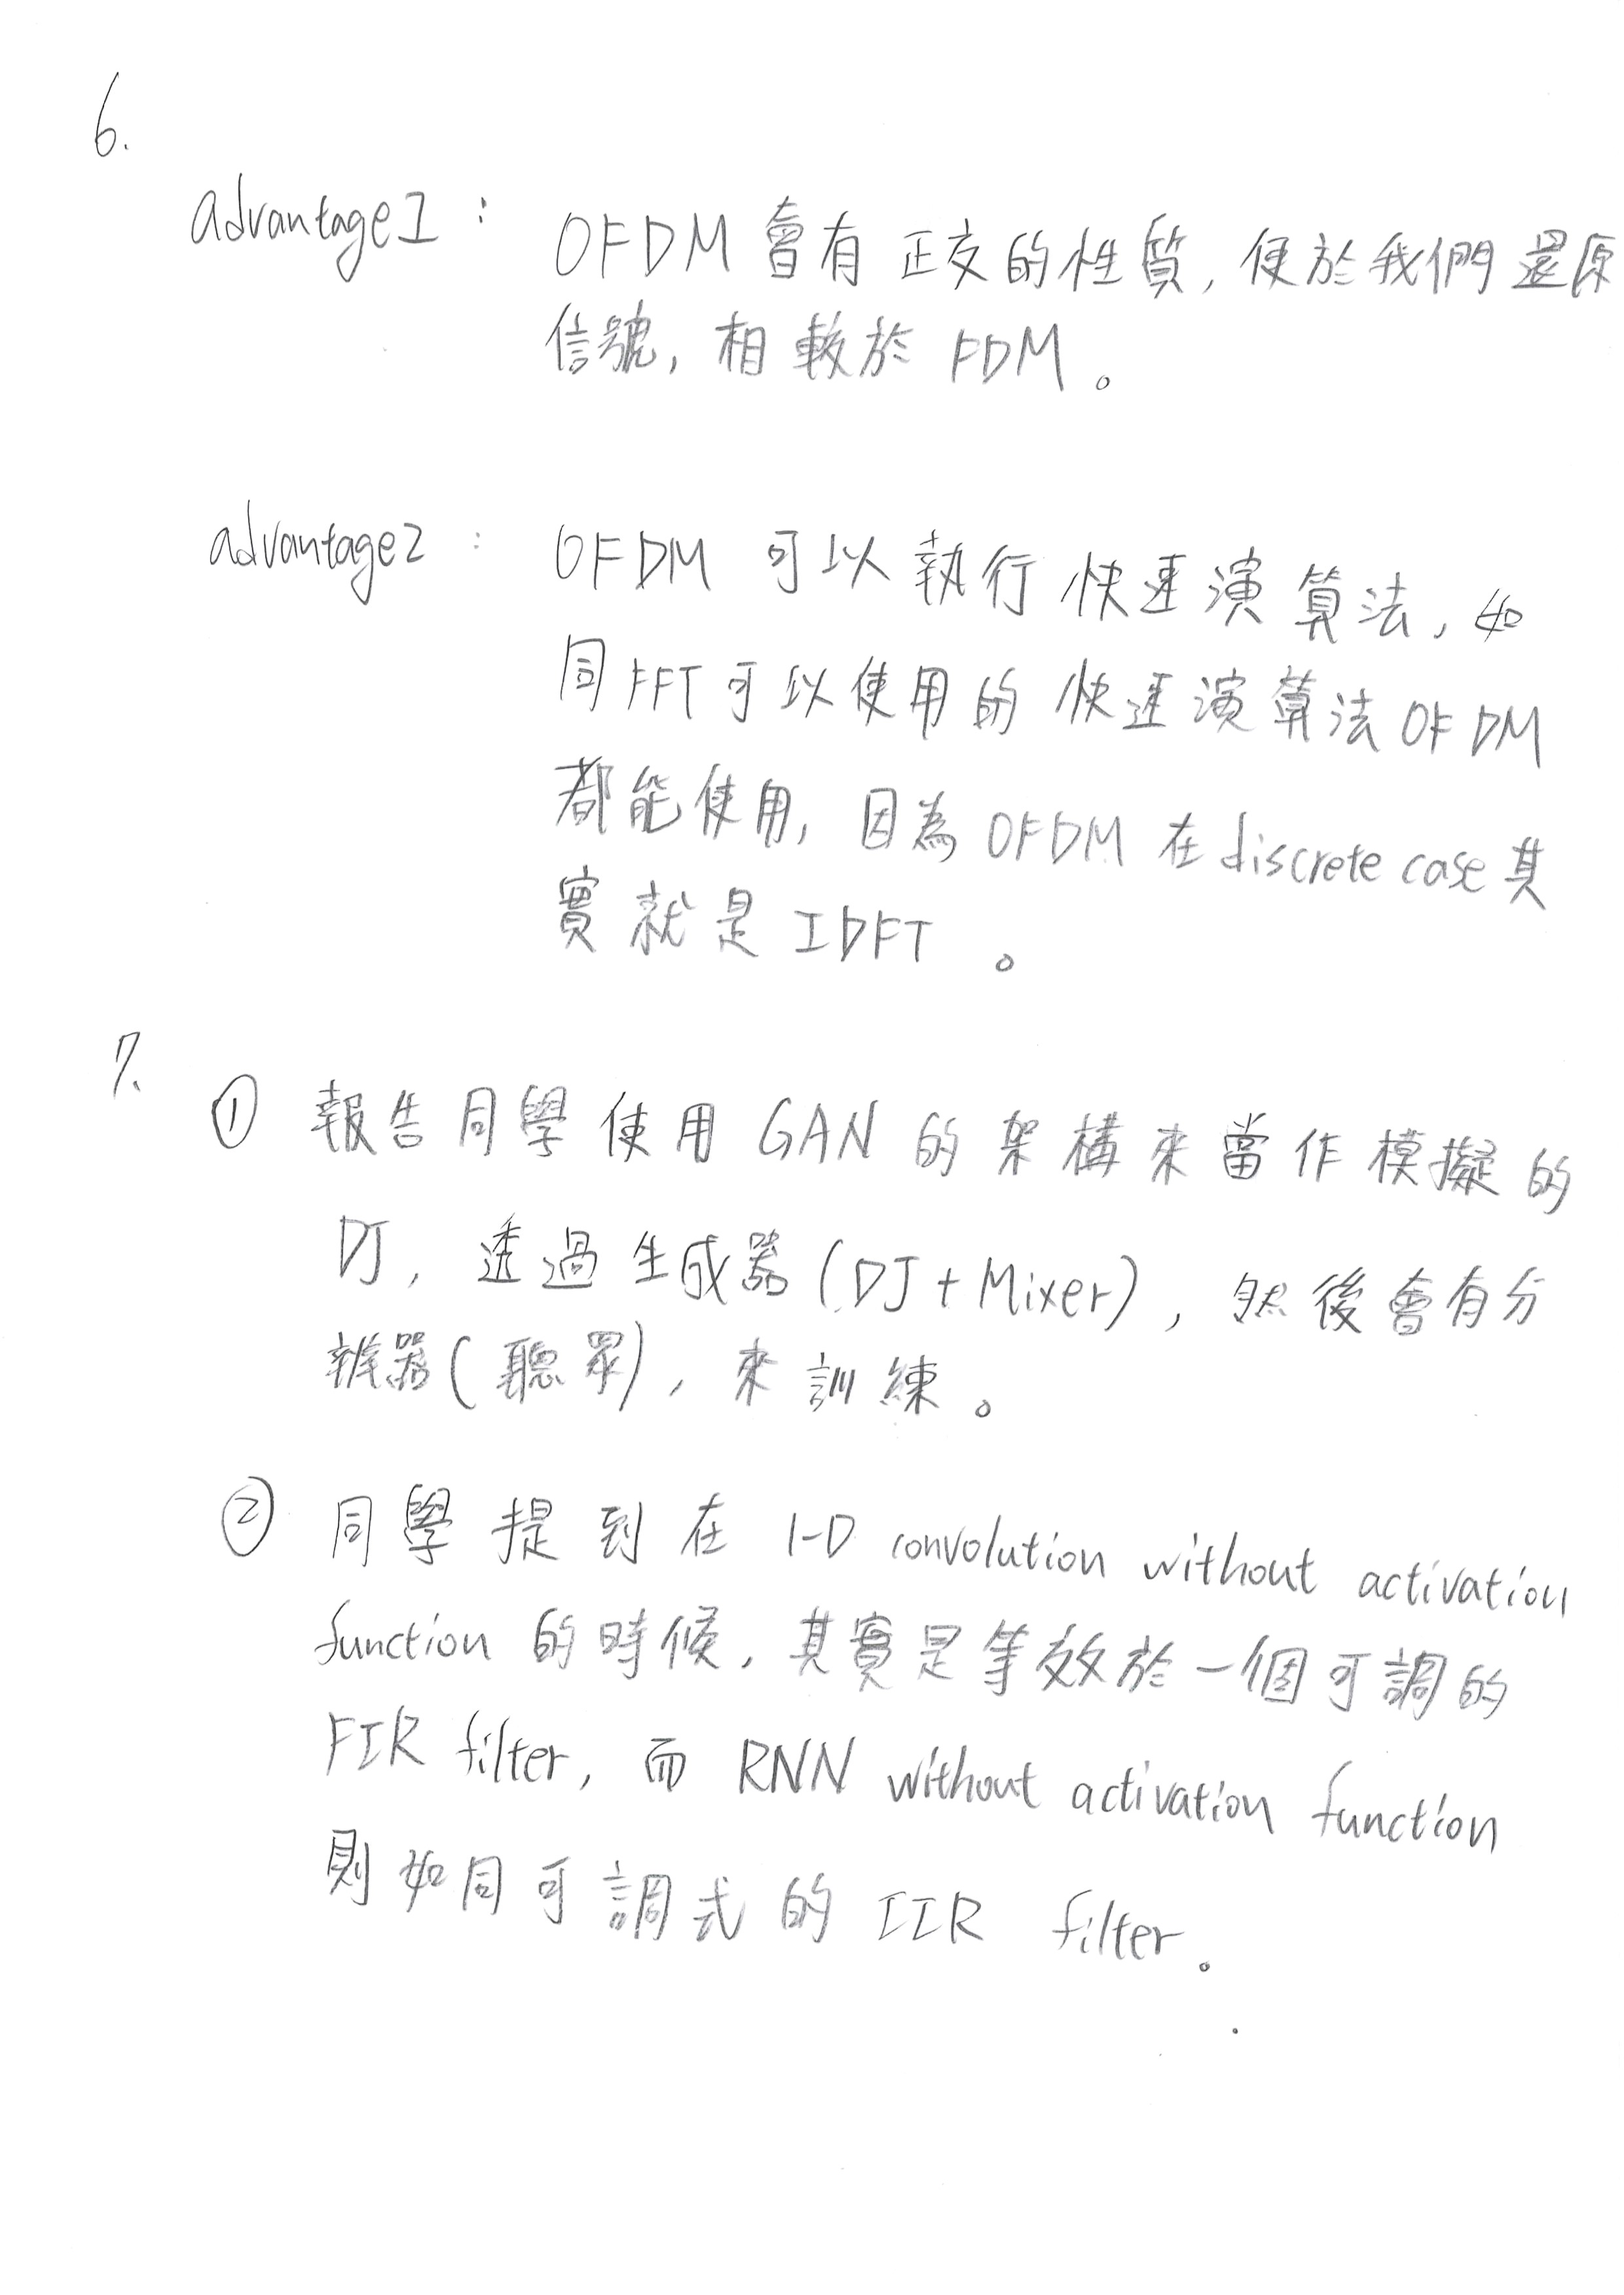 6.
advantage1 : OFDM 會有正交的性質, 便於我們還原
信號, 相較於 FDM。
advantage2 : OFDM 可以執行快速演算法, 如
同FFT可以使用的快速演算法OFDM
都能使用, 因為 OFDM 在discrete case其
實就是IDFT。
7.
① 報告同學使用 GAN 的架構來當作模擬的
DJ, 透過生成器(DJ+Mixer), 然後會有分
辨器(聽眾), 來訓練。
② 同學提到在 1-D convolution without activation
function 的時候, 其實是等效於一個可調的
FIR filter, 而 RNN without activation function
則如同可調式的 IIR filter。